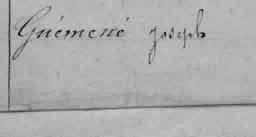 Guémené joseph